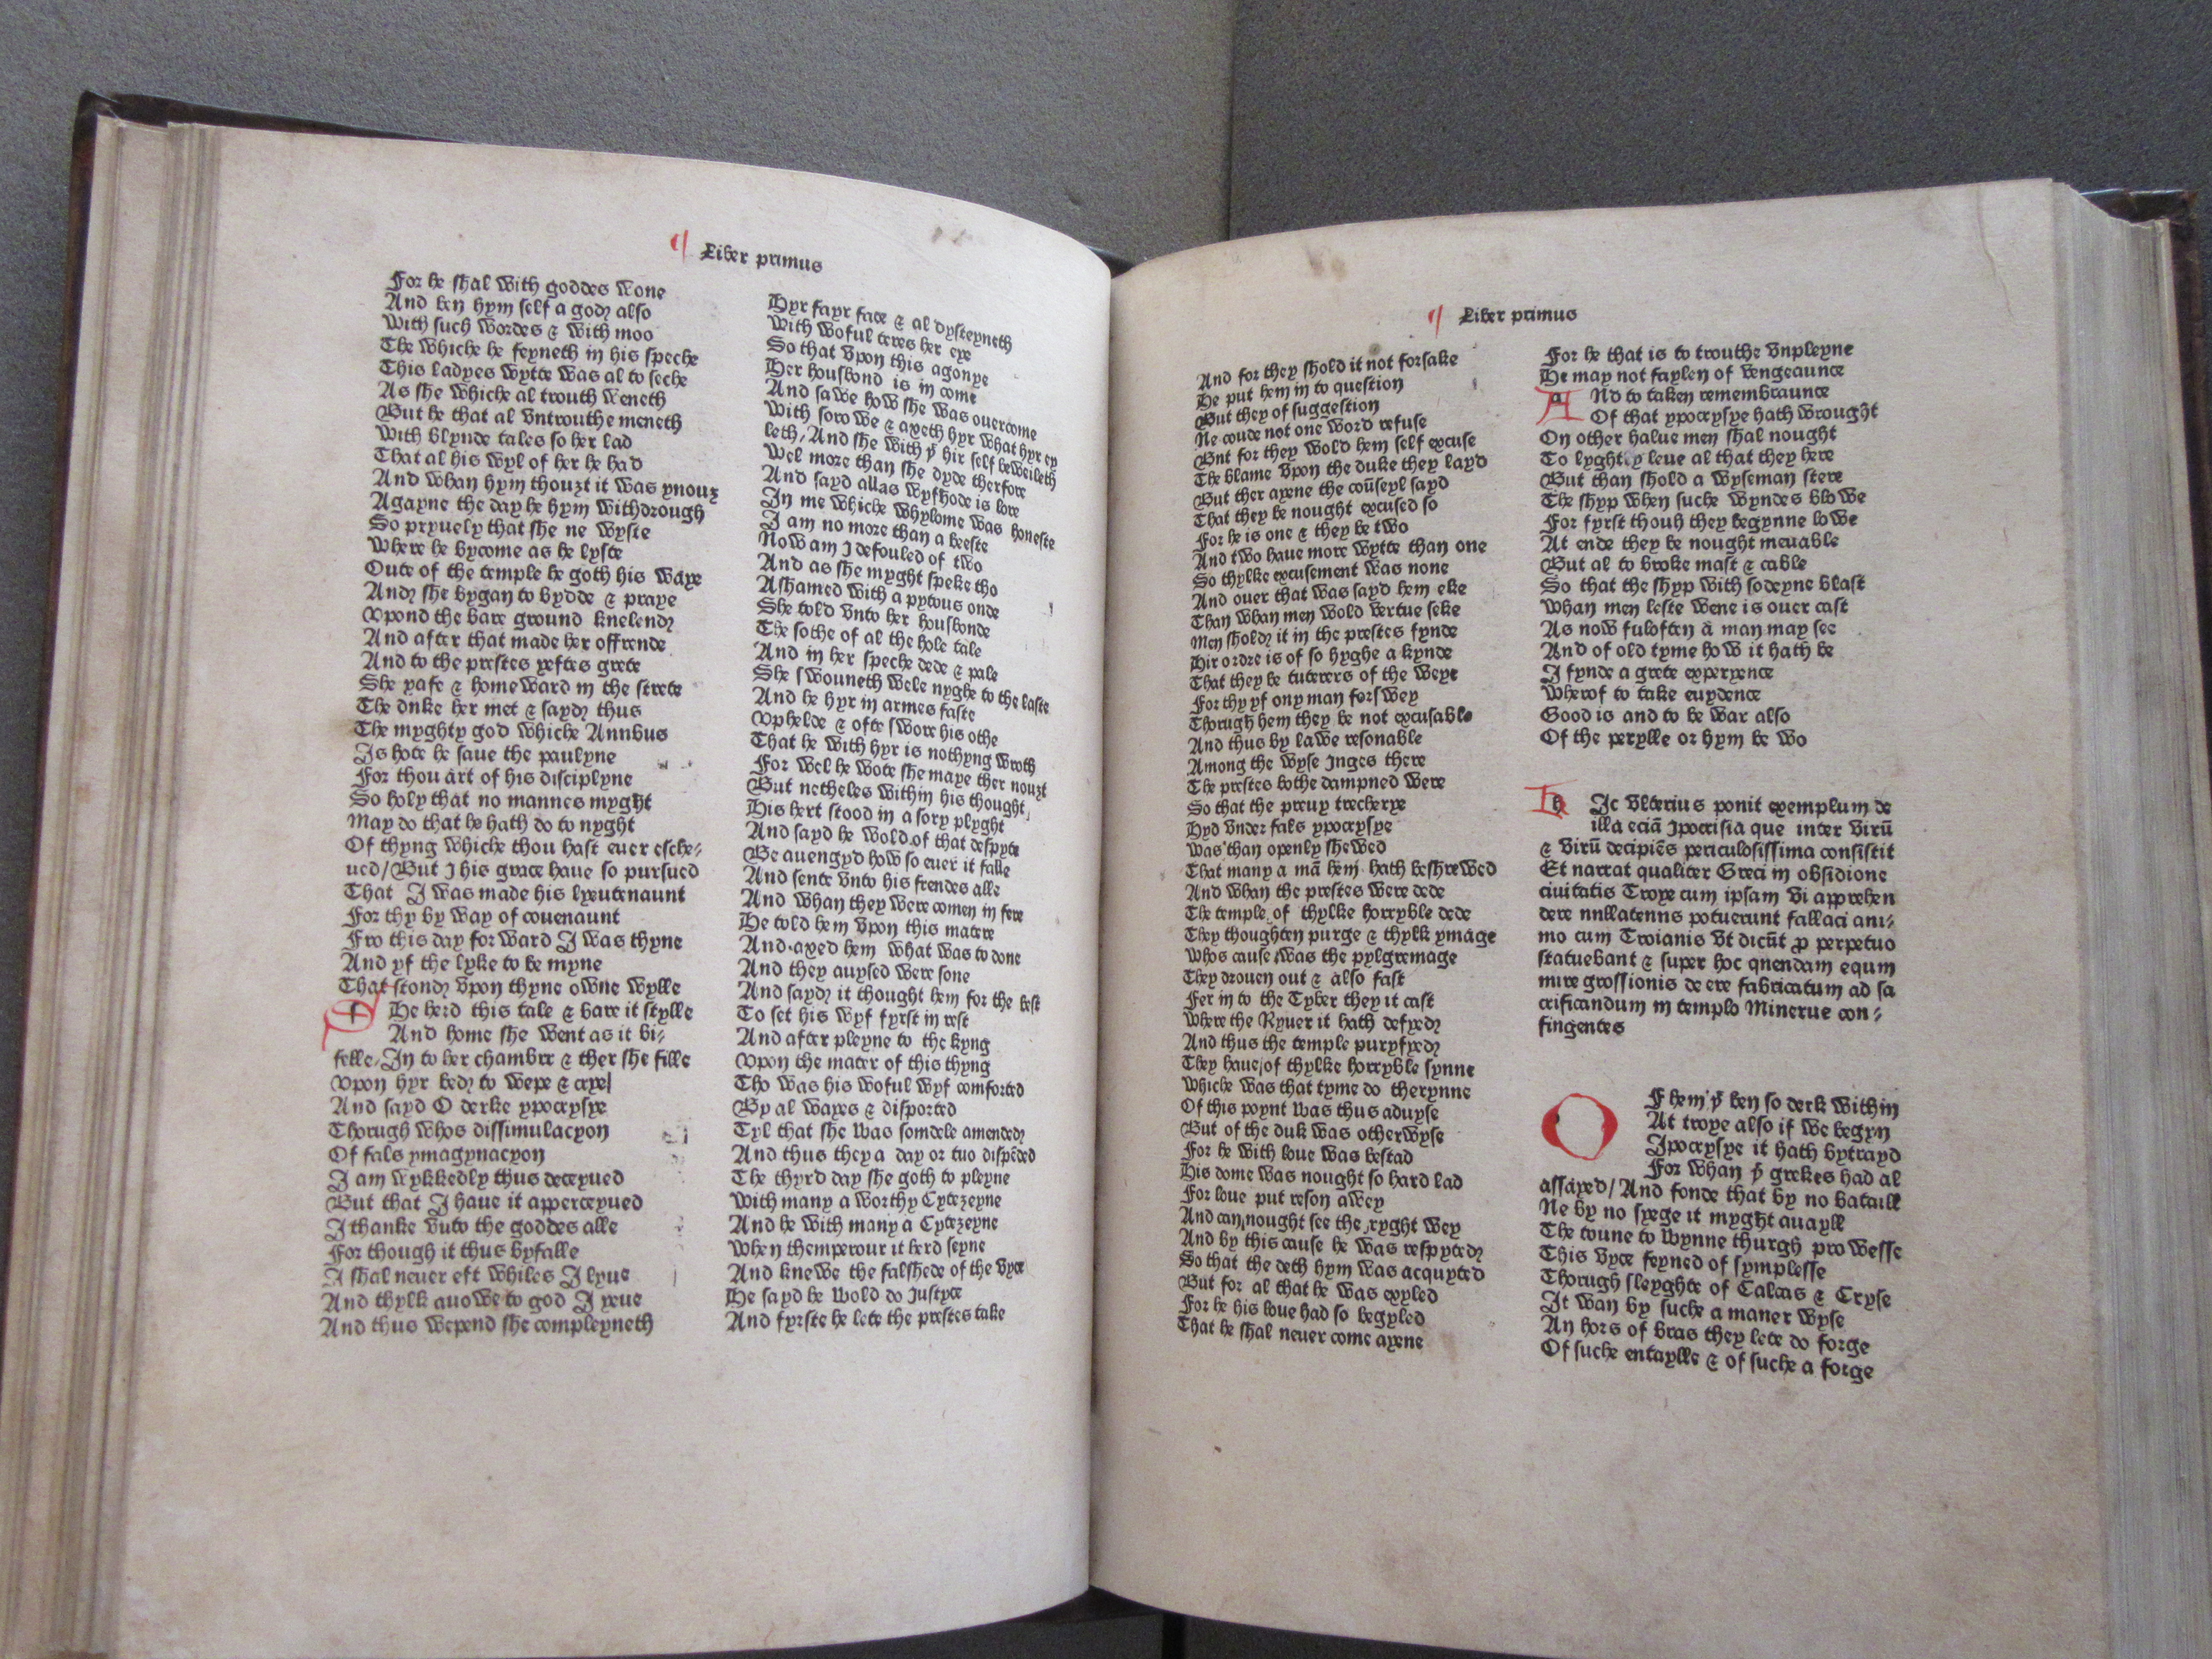 Liber primus
For he shal with goddes wone
And ben hym self a god also
With such wordes & with moo
The whiche he feyneth in his speche
This ladyes wytte was al to seche
As she whiche al trouth weneth
But he that al vntrouthe meneth
With blynde tales so her lad
That al his wyl of her he had
And whan hym thouzt it was ynouz
Agayne the day he hym withdrough
So pryuely that she ne wyste
Where he bycome as he lyste
Oute of the temple he goth his waye
And she bygan to bydde & praye
Vpond the bare ground knelend
And after that made her offrende
And to the prestes yeftes grete
She yafe & homeward in the strete
The dnke her met & sayd thus
The myghty god whiche Annbus
Is hote he saue the paulyne
For thou art of his disciplyne
So holy that no mannes myght
May do that he hath do to nyght
Of thyng whiche thou hast euer esche-
ued/But I his grace haue so pursued
That I was made his lyeutenaunt
For thy by way of couenaunt
Fro this day forward I was thyne
And yf the lyke to be myne
That stond vpon thyne owne wylle
t He herd this tale & bare it stylle
And home she went as it bi-
felle, In to her chambre & ther she fille
Vpon hyr bed to wepe & crye/
And sayd O derke ypocrysye
Thorugh whos dissimulacyon
Of fals ymagynacyon
I am wykkedly thus deceyued
But that I haue it apperceyued
I thanke vuto the goddes alle
For though it thus byfalle
I shal neuer eft whiles I lyue
And thylk auowe to god I yeue
And thus wepend she compleyneth
Hyr fayr face & al dysteyneth
With woful teres her eye
So that vpon this agonye
Her housbond is in come
And sawe how she was ouercome
With sorowe & axeth hyr what hyr ey
leth, And she with þt hir self beweileth
Wel more than she dyde therfore
And sayd allas wyfhode is lore
In me whiche whylome was honeste
I am no more than a beeste
Now am I defouled of two
And as she myght speke tho
Ashamed with a pytous onde
She told vnto her housbonde
The sothe of al the hole tale
And in her speche dede & pale
She swouneth wele nyghe to the laste
And he hyr in armes faste
Vphelde & ofte swore his othe
That he with hyr is nothyng wroth
For wel he wote she maye ther nouzt
But netheles within his thought
His hert stood in a sory plyght
And sayd he wold of that despyte
Be auengyd how so euer it falle
And sente vnto his frendes alle
And whan they were comen in fere
He told hem vpon this matere
And axed hem what was to done
And they auysed were sone
And sayd it thought hem for the best
To set his wyf fyrst in rest
And after pleyne to the kyng
Vpon the mater of this thyng
Tho was his woful wyf comforted
By al wayes & disported
Tyl that she was somdele amended
And thus they a day or tuo dispēded
The thyrd day she goth to pleyne
With many a worthy Cytezeyne
And he with many a Cytezeyne
When themperour it herd seyne
And knewe the falshede of the vyce
He sayd he wold do Justyce
And fyrste he lete the prestes take
Liber primus
And for they shold it not forsake
He put hem in to question
But they of suggestion
Ne coude not one word refuse
Bnt for they wold hem self excuse
The blame vpon the duke they layd
But ther ayene the coūseyl sayd
That they be nought excused so
For he is one & they be two
And two haue more wytte than one
So thylke excusement was none
And ouer that was sayd hem eke
Than whan men wold vertue seke
Men shold it in the prestes fynde
Hir ordre is of so hyghe a kynde
That they be tuterers of the weye
For thy yf ony man forswey
Thorugh hem they be not excusable
And thus by lawe resonable
Among the wyse Juges there
The prestes bothe dampned were
So that the preuy trecherye
Hyd vnder fals ypocrysye
Was than openly shewed
That many a mā hem hath beshrewed
And whan the prestes were dede
The temple of thylke horryble dede
They thoughten purge & thylk ymage
Whos cause was the pylgremage
They drouen out & also fast
Fer in to the Tyber they it cast
Where the Ryuer it hath defyed
And thus the temple puryfyed
They haue of thylke horryble synne
Whiche was that tyme do therynne
Of this poynt was thus aduyse
But of the duk was otherwyse
For he with loue was bestad
His dome was nought so hard lad
For loue put reson awey
And can nought see the ryght wey
And by this cause he was respyted
So that the deth hym was acquyted
But for al that he was exyled
For he his loue had so begyled
That he shal neuer come ayene
For he that is to trouthe vnpleyne
He may not faylen of vengeaunce
a Nd to taken remembraunce
Of that ypocrysye hath wrought
On other halue men shal nought
To lyghtly leue al that they here
But than shold a wyseman stere
The shyp when suche wyndes blowe
For fyrst thouh they begynne lowe
At ende they be nought meuable
But al to broke mast & cable
So that the shyp with sodeyne blast
Whan men leste wene is ouer cast
As now fuloften a man may see
And of old tyme how it hath be
I fynde a grete experyence
Wherof to take euydence
Good is and to be war also
Of the perylle or hym be wo
h Ic vlterius ponit exemplum de
illa eciā Ipocrisia que inter virū
& virū decipiēs periculosissima consistit
Et narrat qualiter Greci in obsidione
ciuitatis Troye cum ipsam vi apprehen
dere nnllatenns potuerunt fallaci ani-
mo cum Troianis vt dicūt ꝓ perpetuo
statuebant & super hoc qnendam equm
mire grossionis de ere fabricatum ad sa
crificandum in templo Minerue con-
fingentes
O F hem þt ben so derk within
At troye also if we begyn
Ipocrysye it hath bytrayd
For whan þe grekes had al
assayed/And fonde that by no bataill
Ne by no syege it myght auayll
The toune to wynne thurgh prowesse
This vyce feyned of symplesse
Thorugh sleyghte of Calcas & Cryse
It wan by suche a maner wyse
An hors of bras they lete do forge
Of suche entaylle & of suche a forge